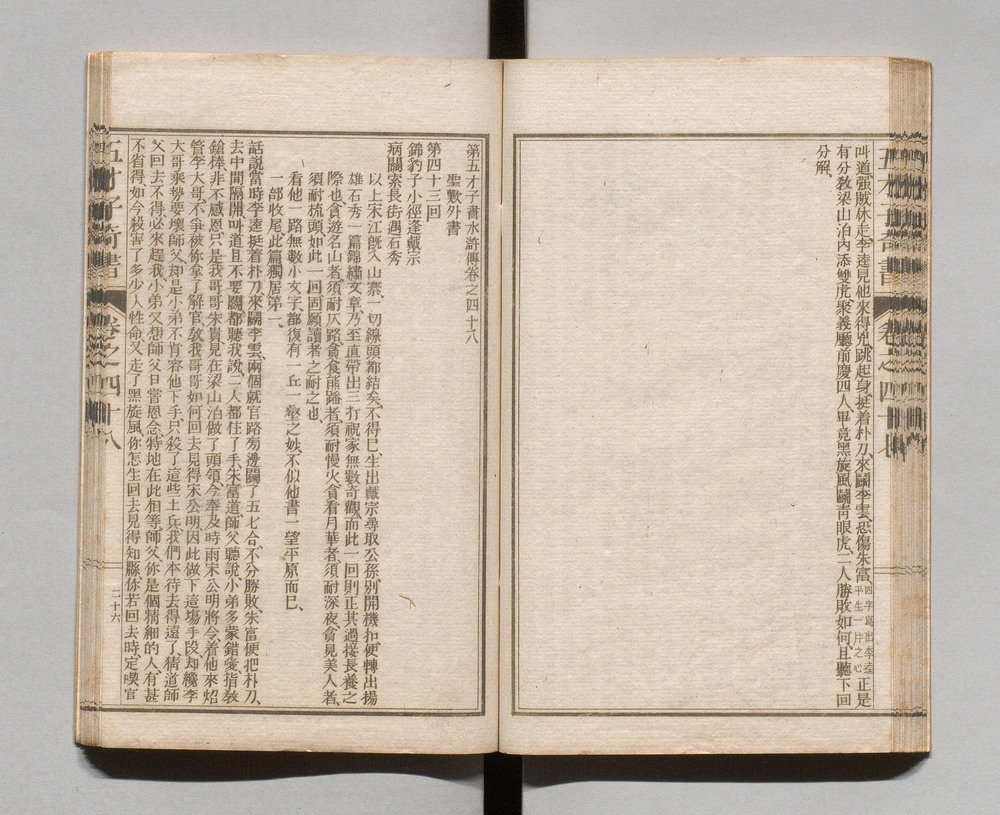 叫道強賊休走李逵見他來得兇跳起身挺着朴刀來鬭李雲恐傷朱富四字寫出李逵平生一片之心正是
有分教梁山泊內添雙虎聚義廳前慶四人畢竟黑旋風鬭青眼虎二人勝敗如何且聽下回
分解
第五才子書水滸傳卷之四十八
聖歎外書
第四十三回
錦豹子小徑逢戴宗
病關索長街遇石秀
以上宋江旣入山寨一切線頭都結矣不得巳生出戴宗尋取公孫別開機扣便轉出揚
雄石秀一篇錦繡文章乃至直帶出三打祝家無數奇觀而此一回則正其過接長養之
際也貪遊名山者須耐仄路貪食熊蹯者須耐慢火貪看月華者須耐深夜貪見美人者
須耐梳頭如此一回固願讀者之耐之也
看他一路無數小文字都復有一丘一壑之妙不似他書一望平原而巳
一部收尾此篇獨居第一
話說當時李逵挺着朴刀來鬭李雲兩個就官路旁邊鬭了五七合不分勝敗朱富便把朴刀
去中間隔開叫道且不要鬭都聽我說二人都住了手朱富道師父聽說小弟多蒙錯愛指教
鎗棒非不感恩只是我哥哥朱貴見在梁山泊做了頭領今奉及時雨宋公明將令着他來炤
管李大哥不爭被你拿了解官敎我哥哥如何回去見得宋公明因此做下這塲手段却纔李
大哥乘勢要壞師父却是小弟不肯容他下手只殺了這些土兵我們本待去得遠了猜道師
父回去不得必來趕我小弟又想師父日常恩念特地在此相等師父你是個精細的人有甚
不省得如今殺害了多少人性命又走了黑旋風你怎生回去見得知縣你若回去時定喫官
五才子奇書
卷之四十八
二十六